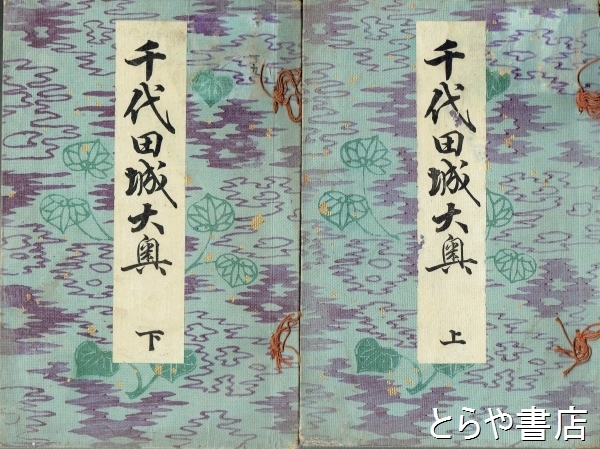 千代田城大奥
上
千代田城大奥
下
とらや書店